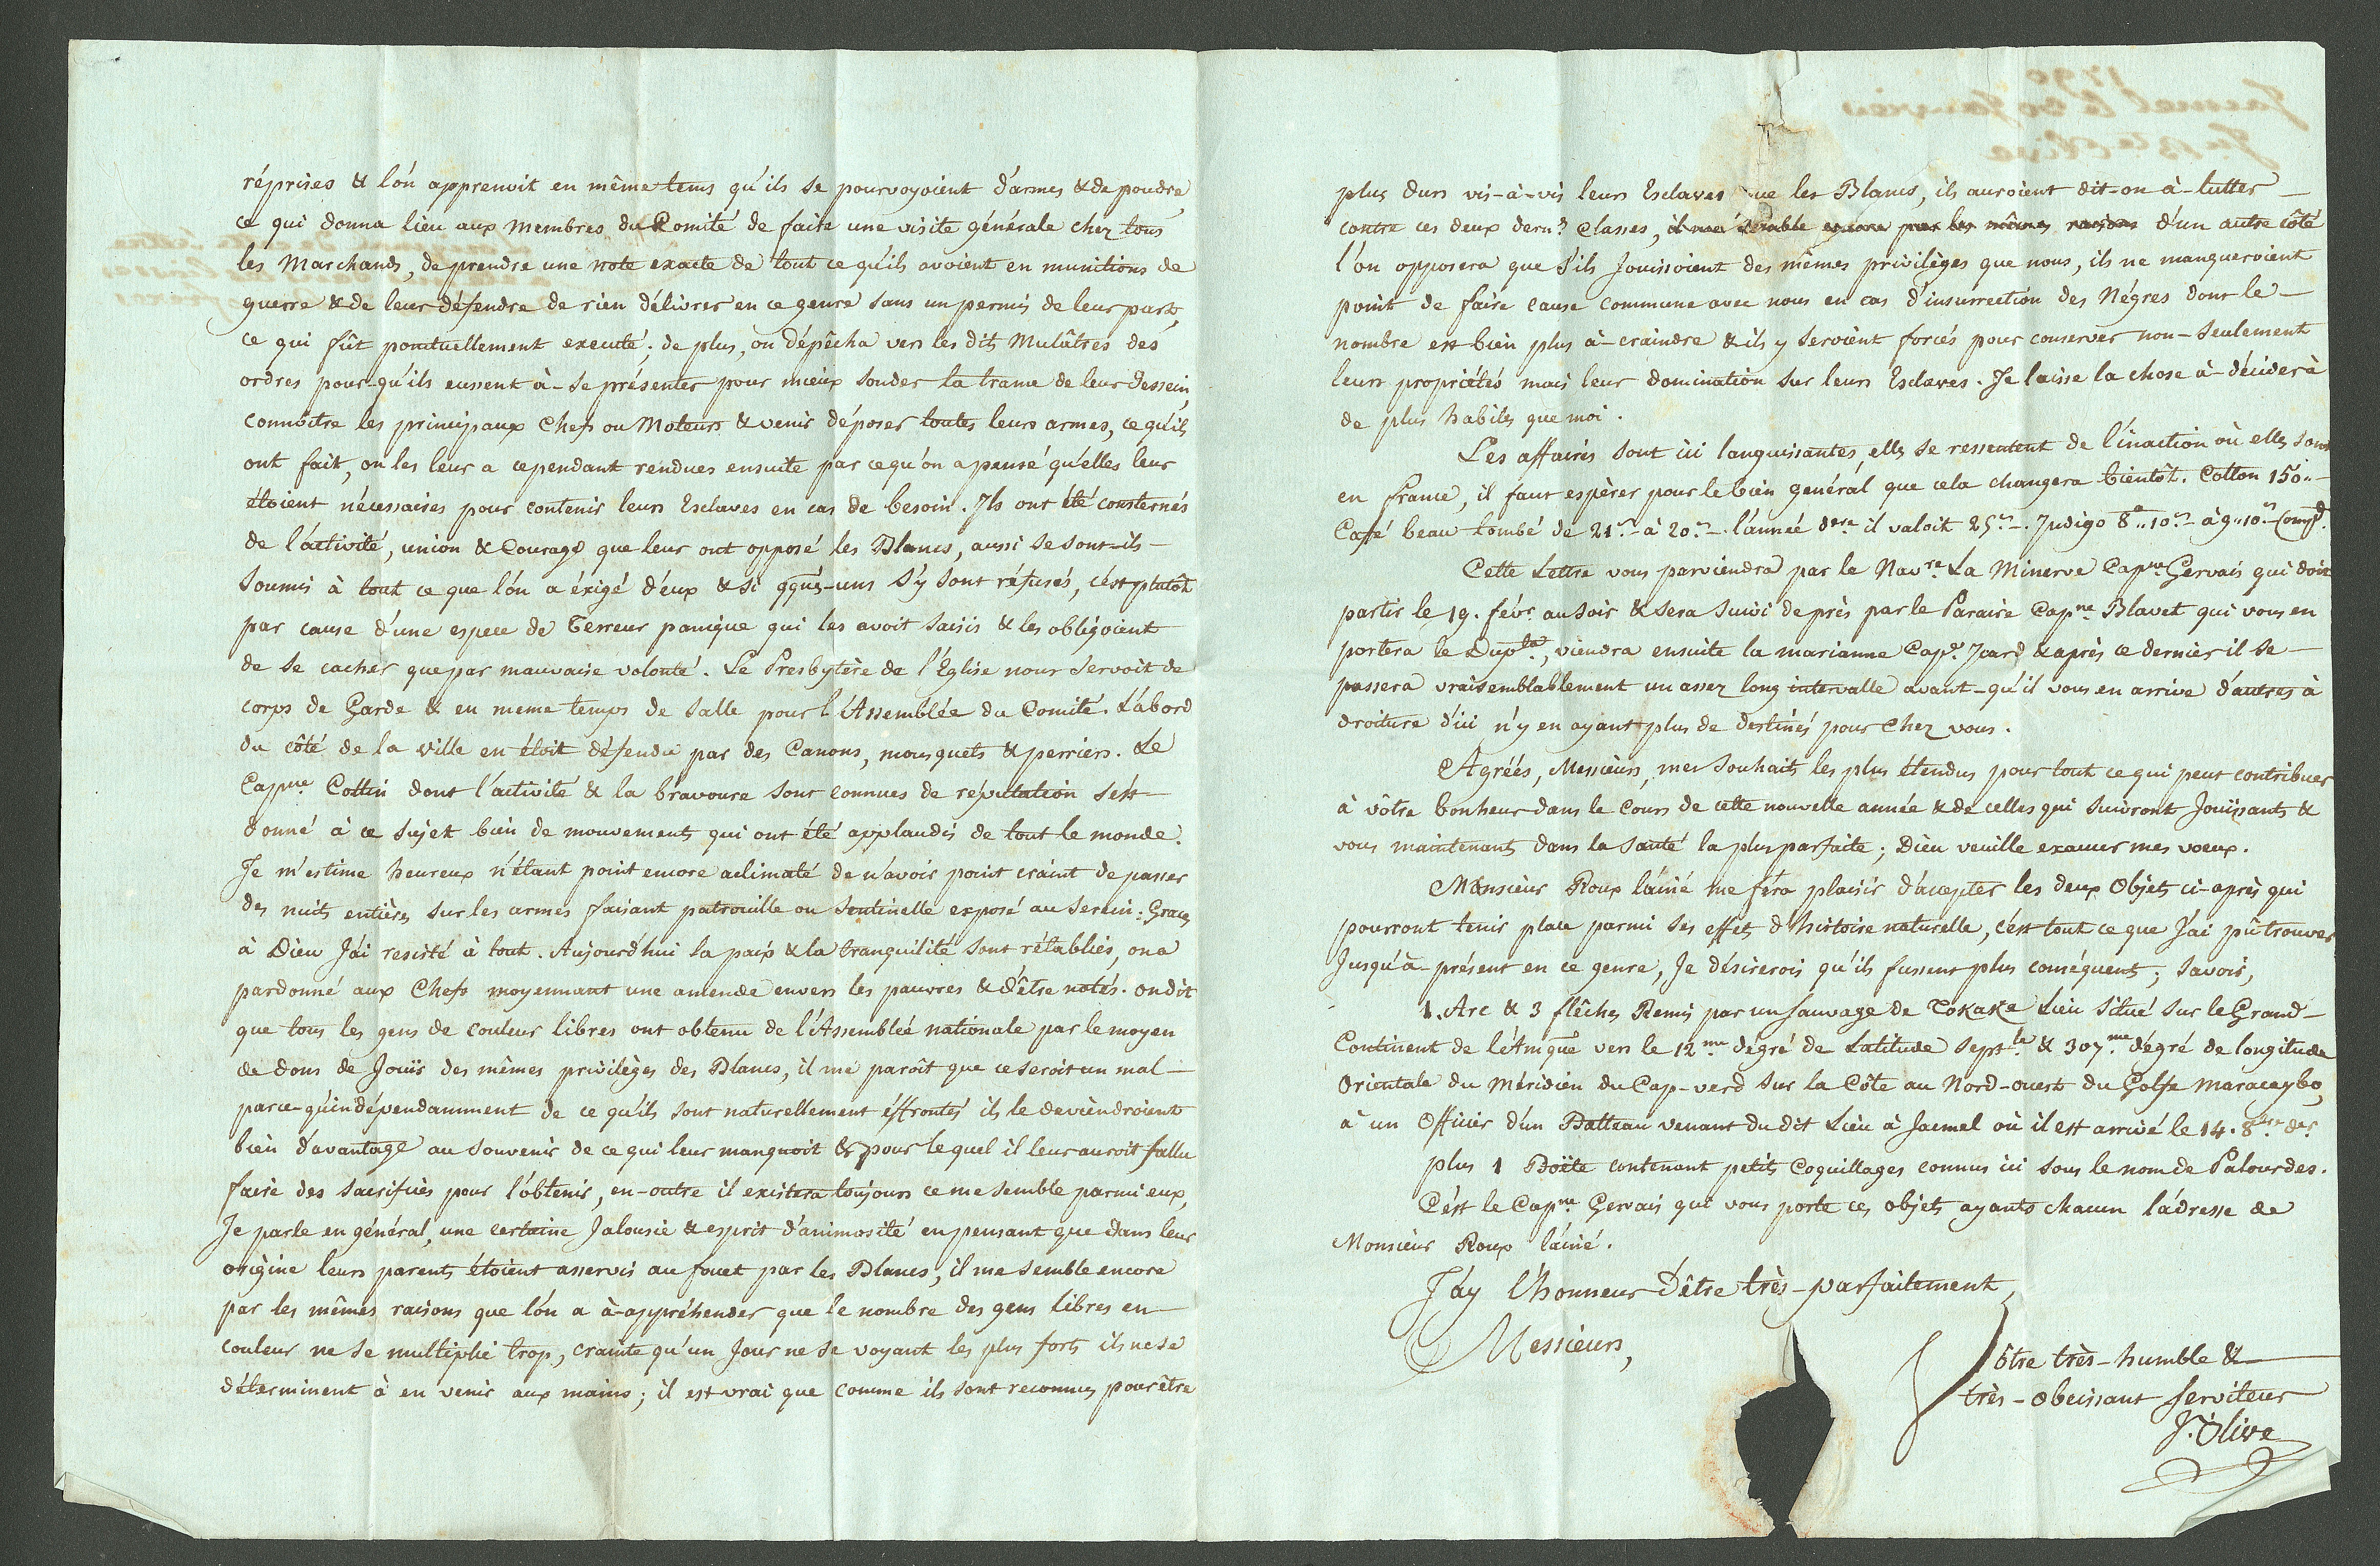 réprises & l'on apprenoit en même tems qu'ils se pourvoyoient d'armes & de poudre,
ce qui donna lieu aux Membres du Comité de faire une visite générale chez tous
les Marchands, de prendre une note exacte de tout ce qu'ils avoient en munitions de
guerre & de leur défendre de rien délivrer en ce genre sans un permis de leur part,
ce qui fût ponctuellement executé; de plus, on dépêcha vers les dits Mulâtres des
ordres pour-qu'ils eussent à-se présenter pour mieux sonder la trame de leur dessein,
connoitre les principaux Chefs ou Moteurs & venir déposer toutes leurs armes, ce qu'ils
ont fait, on les leur a cependant rendues ensuite par ce qu'on a pensé qu'elles leur
étoient nécessaires pour contenir leurs Esclaves en cas de besoin. Ils ont été consternés
de l'activité, union & Courage que leur ont opposé les Blancs, aussi se sont-ils
soumis à tout ce que l'on a éxigé d'eux & si qques-uns s'y sont réfusés, c'est plutôt
par cause d'une espece de Terreur panique qui les avoit saisis & les obligeoient
de se cacher que par mauvaise volonté. Le Presbytère de l'Eglise nour servoit de
corps de Garde & en meme temps de salle pour l'Assemblée du Comité. L'abord
du côté de la ville en étoit défendu par des Canons, mousquets & perriers. Le
Capne Cottin dont l'activité & la bravoure sont connues de réputation s'est
donné à ce sujet bien de mouvements qui ont été applaudis de tout le monde.
Je m'estime heureux n'étant point encore aclimaté de n'avoir point craint de passer
des nuits entières sur les armes faisant patrouille ou sentinelle exposé au serein: Graces
à Dieu J'ai resisté à tout. Aujourd'hui la paix & la tranquilité sont rétablies, on a
pardonné aux Chefs moyennant une amende envers les pauvres & d'être notés. on dit
que tous les gens de couleur libres ont obtenu de l'Assemblée nationale par le moyen
de dons de Jouir des mêmes privilèges des Blancs, il me paroît que ce seroit un mal
parce-qu'indépendamment de ce qu'ils sont naturellement éffrontés ils le deviendroient
bien d'avantage au souvenir de ce qui leur manquoit & pour lequel il leur auroit fallu
faire des sacrifices pour l'obtenir, en-outre il existera toujours ce me semble parmi eux,
Je parle en général, une certaine Jalousie & esprit d'animosité en pensant que dans leur
origine leurs parents étoient asservis au fouet par les Blancs, il me semble encore
par les mêmes raisons que l'on a à-appréhender que le nombre des gens libres en
couleur ne se multiplie trop, crainte qu'un Jour ne se voyant les plus forts ils ne se
déterminent à en venir aux mains; il est vrai que comme ils sont reconnus pour être
1790
Jacmel le 30 Janvier
Olive
plus durs vis-à-vis leurs Esclaves que les Blancs, ils auroient dit-on à-lutter
contre ces deux dern.s Classes, il me semble encore par les mêmes raisons d'un autre côté
l'on opposera que s'ils Jouissoient des mêmes privilèges que nous, ils ne manqueroient
point de faire cause commune avec nous en cas d'insurrection des Négres dont le
nombre est bien plus à-craindre & ils y seroient forcés pour conserver non-seulement
leurs propriétés mais leur domination sur leurs Esclaves. Je laisse la chose à-décider à
de plus habiles que moi.
Les affaires sont ici languissantes, elles se ressentent de l'inaction où elles sont
en france, il faut espèrer pour le bien général que cela changera bientôt. Cotton 150"
Café beau tombé de 21s à 20s. l'année dere il valoit 25s. Indigo 8" 10s à 9" 10s
Cette Lettre vous parviendra par le Navre La Minerve Capne Gervais qui doit
partir le 19. févr au soir & sera suivi de près par le Paraire Capne Blavet qui vous en
portera le Dupta, viendra ensuite la marianne Cape Icard & après ce dernier il se
passera vraisemblablement un assez long intervalle avant-qu'il vous en arrive d'autres à
droiture d'ici n'y en ayant plus de destinés pour Chez vous.
Agréés, Messieurs, mes souhaits les plus étendus pour tout ce qui peut contribuer
à vôtre bonheur dans le Cours de cette nouvelle année & de celles qui suivront Jouissants &
vous maintenants dans la santé la plus parfaite; Dieu veuille exaucer mes voeux.
Monsieur Roux l'ainé me féra plaisir d'accepter les deux Objets ci-après qui
pourront tenir place parmi ses effets d'histoire naturelle, c'est tout ce que J'ai pû trouver
Jusqu'à-présent en ce genre, Je désirerois qu'ils fussent plus conséquents; savoir,
1. Arc & 3 flêches Remis par un Sauvage de Cokake Lieu situé sur le Grand
Continent de l'Amque vers le 12.me dégré de Latitude Septle & 307.me dégré de longitude
Orientale du Méridien du Cap-verd sur la Côte au Nord-ouest du Golfe Maracaybo,
à un Officier d'un Batteau venant du dit Lieu à Jacmel où il est arrivé le 14. 8bre der
plus 1 Boëte contenant petits Coquillages connus ici sous le nom de Palourdes.
C'est le Capne Gervais qui vous porte ces objets ayants chacun l'adresse de
Monsieur Roux l'ainé.
J'ay l'honneur d'être très-parfaitement,
Messieurs,
Vôtre très-humble &
très-obeissant serviteur
J. Olive